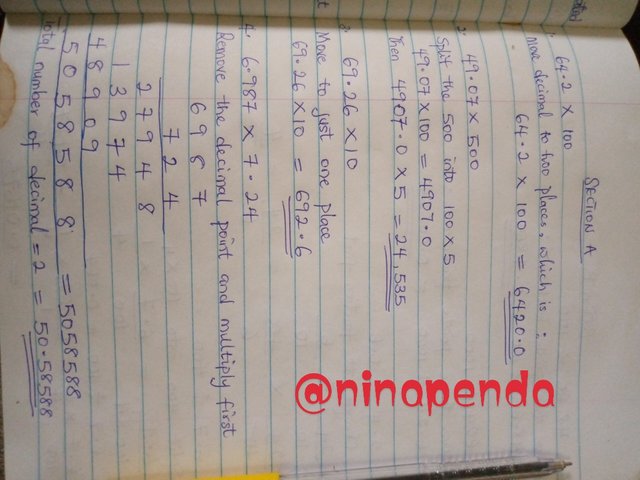 SECTION A
1. 64.2 x 100
Move decimal to two places, which is :
64.2 x 100 = 6420.0
2. 49.07 x 500
Split the 500 into 100 x 5
49.07 x 100 = 4907.0
Then 4907.0 x 5 = 24,535
3. 69.26 x 10
Move to just one place
69.26 x 10 = 692.6
4. 6.987 x 7.24
Remove the decimal point and multiply first
6987
724
27948
13974
48909
5058588 = 5058588
Total number of decimal = 2 = 50.58588
@ninapenda